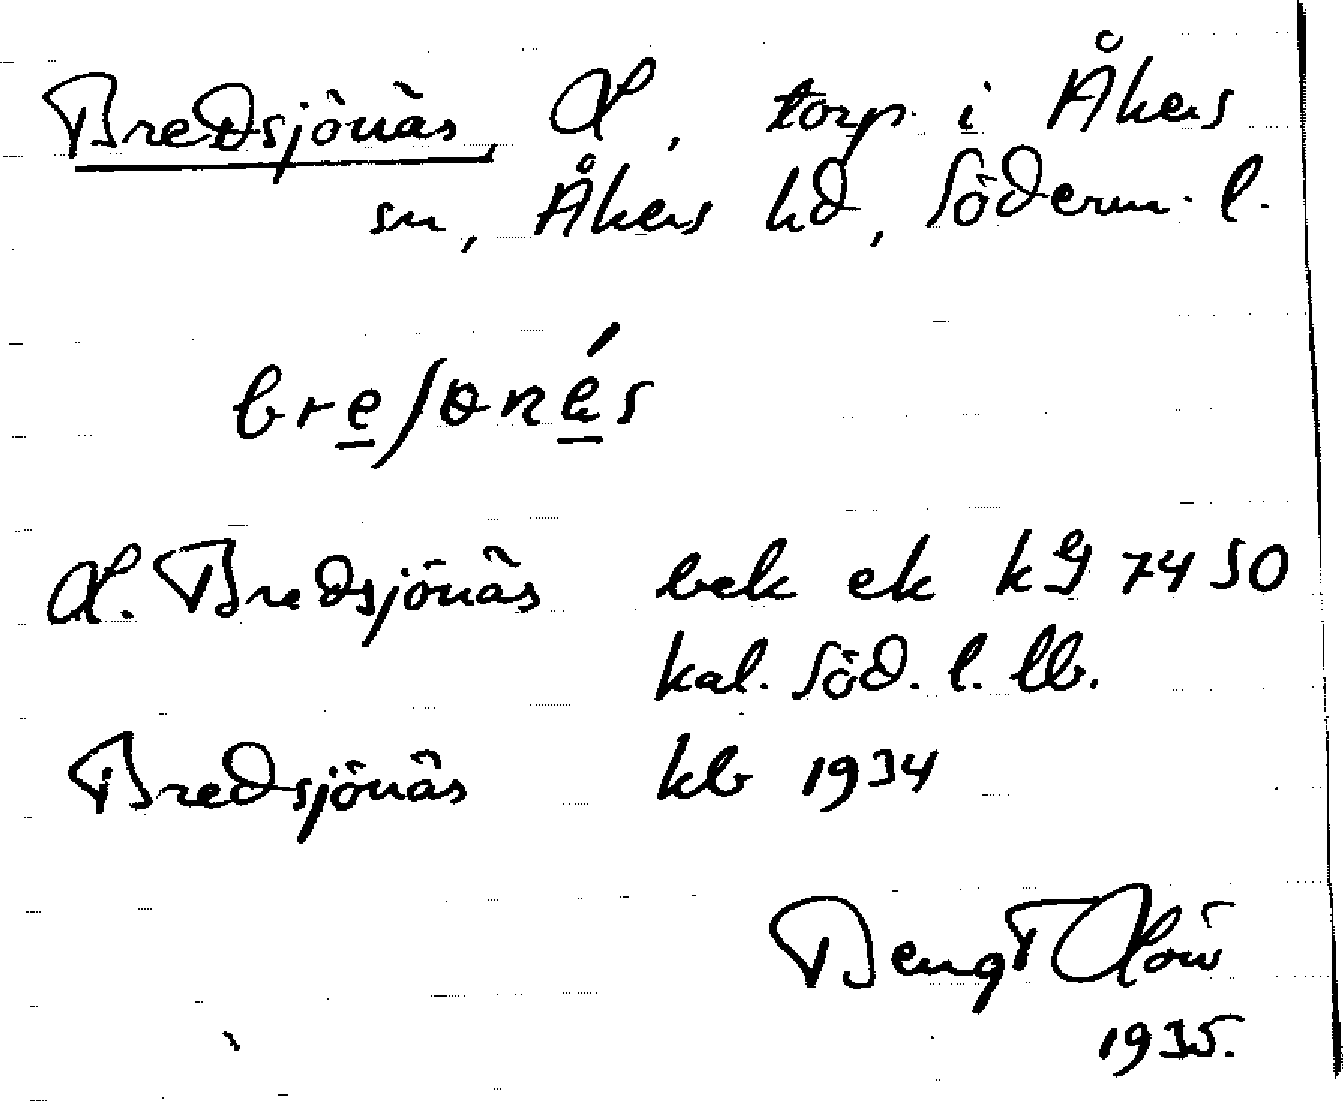 Bredsjönäs, L, torp i Åkers
sn, Åkers hd, Söderm. l.
breʃɵnés
L. Bredsjönäs bek ek kG 7450
kal. Söd. l. lb.
Bredsjönäs kb 1934
Bengt
1935.